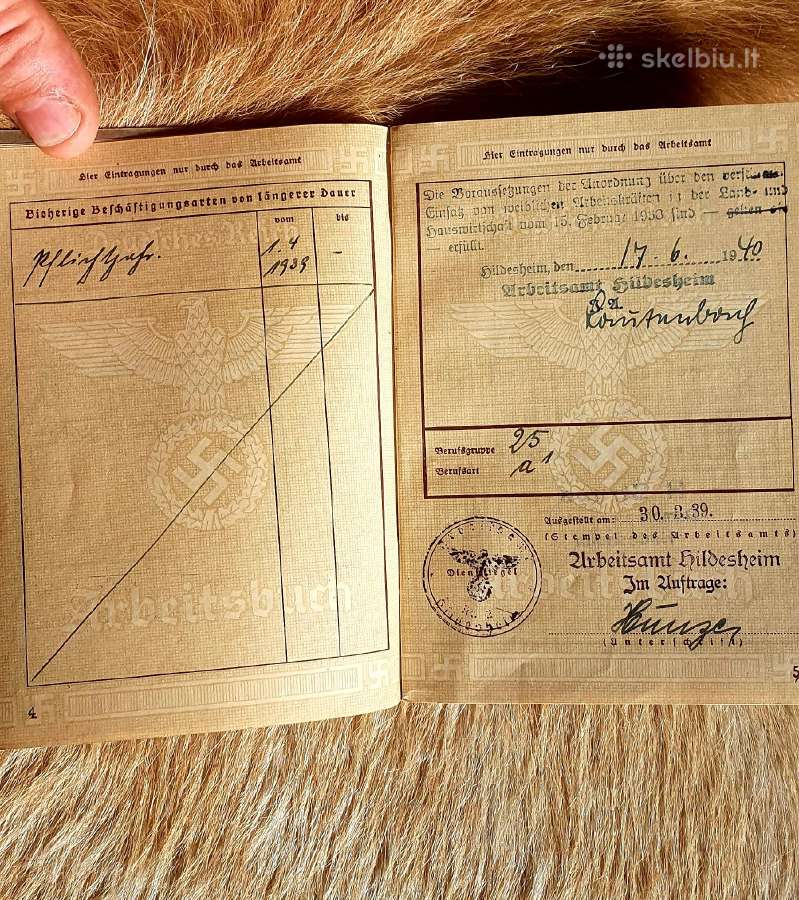 skelbiu.lt
Hier Eintragungen nur durch das Arbeitsamt
Bisherige Beschäftigungsarten von längerer Dauer
vom
bis
Pflichtjahr.
1.4
1939
–
Arbeitsbuch
4
Hier Eintragungen nur durch das Arbeitsamt
Die Voraussetzungen der Anordnung über den
Einsatz von weiblichen Arbeitskräften in der Land- und
Hauswirtschaft vom 15. Februar 1938 sind — gelten als
— erfüllt.
Hildesheim, den 17.6. 1940
Arbeitsamt Hildesheim
I. A.
Lautenbach
Berufsgruppe 25
Berufsart a 1
Ausgestellt am: 30.3.39.
(Stempel des Arbeitsamts)
Arbeitsamt Hildesheim
Im Auftrage:
Dienstsiegel
(Unterschrift)
5